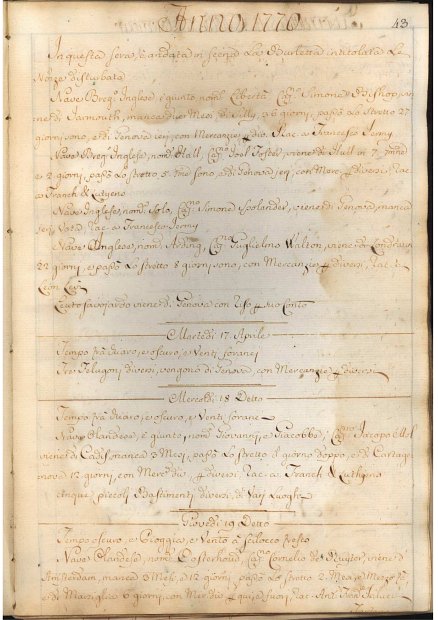 Anno 1770
43
In questa sera, è andata in scena La Burletta intitolata Le
Nozze disturbate
Nave Breg.° Inglese è giunto, nom.° Libertà Cap.no Simone Bishop, vie-
ne di Yarmouth, manca due Mesi, di Silly, 36 giorni, passò Lo Stretto 27
giorni sono, e di Genova ieri, con Mercanzie p. div. Rac. a Francesco Jermy
Nave Breg.° Inglese, nom.° Hall, Cap.no Joel Foster, viene di Hull in 7 Settne
e 2 giorni, passò Lo Stretto 5 sono, e di Genova ieri, con Merc. p. diversi, Rac.
a Franck &
Nave Inglese, nom.° Cap.no Simone viene di Genova, manca
ieri Vota, Rac. a Francesco Jermy
Nave Inglese, nom.° Cap.no Guglielmo Walton, viene di Londra in
22 giorni, e passò Lo Stretto 8 giorni sono, con Mercanzie p. diversi, Rac. a
Leon Levi
viene di Genova con Riso p. suo Conto
Martedì 17 Aprile
Tempo frà Chiaro, e oscuro, e Venti foranei
Tre diversi, vengono di Genova, con Mercanzie p. diversi
Mercoldì 18 Detto
Tempo frà Chiaro, e oscuro, e Venti foranei
Nave Olandese, è giunto, nom.° Giovanni, e Giacobbe, Cap.no Jacopo
viene di Cadis, manca 3 Mesi, passò Lo Stretto il giorno doppo, e di Cartage-
nova 12 giorni, con Merc. div. p. diversi, Rac. a Franck &
Cinque piccoli Bastimenti diversi, di Varj Luoghi
Giovedì 19 Detto
Tempo oscuro, e Pioggia, e Vento à Scilocco fresco
Nave Olandese, nom.° Oosterhoud, Cap.no Cornelio de Ruyter, viene di
Amsterdam, manca 3 Mesi, e 12 giorni, passò Lo Stretto 2 Mesi, e Mezzo
e di Marsiglia 6 giorni, con Merc. div. p. qui, e fuori, Rac. Ant. Fran.